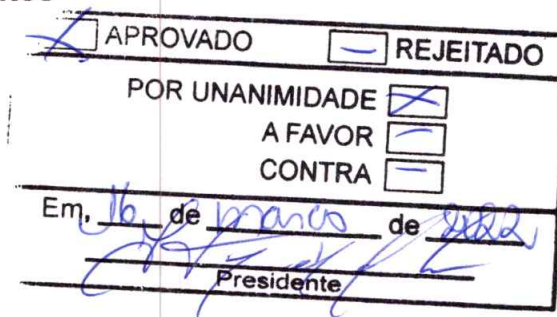 APROVADO REJEITADO
POR UNANIMIDADE
A FAVOR
CONTRA
Em, 16 de março de 2022
Presidente